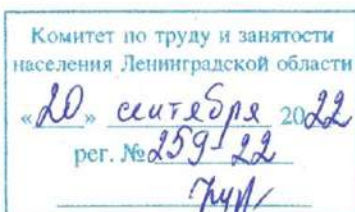 Комитет по труду и занятости
населения Ленинградской области
«20» сентября 2022
рег. № 259-22